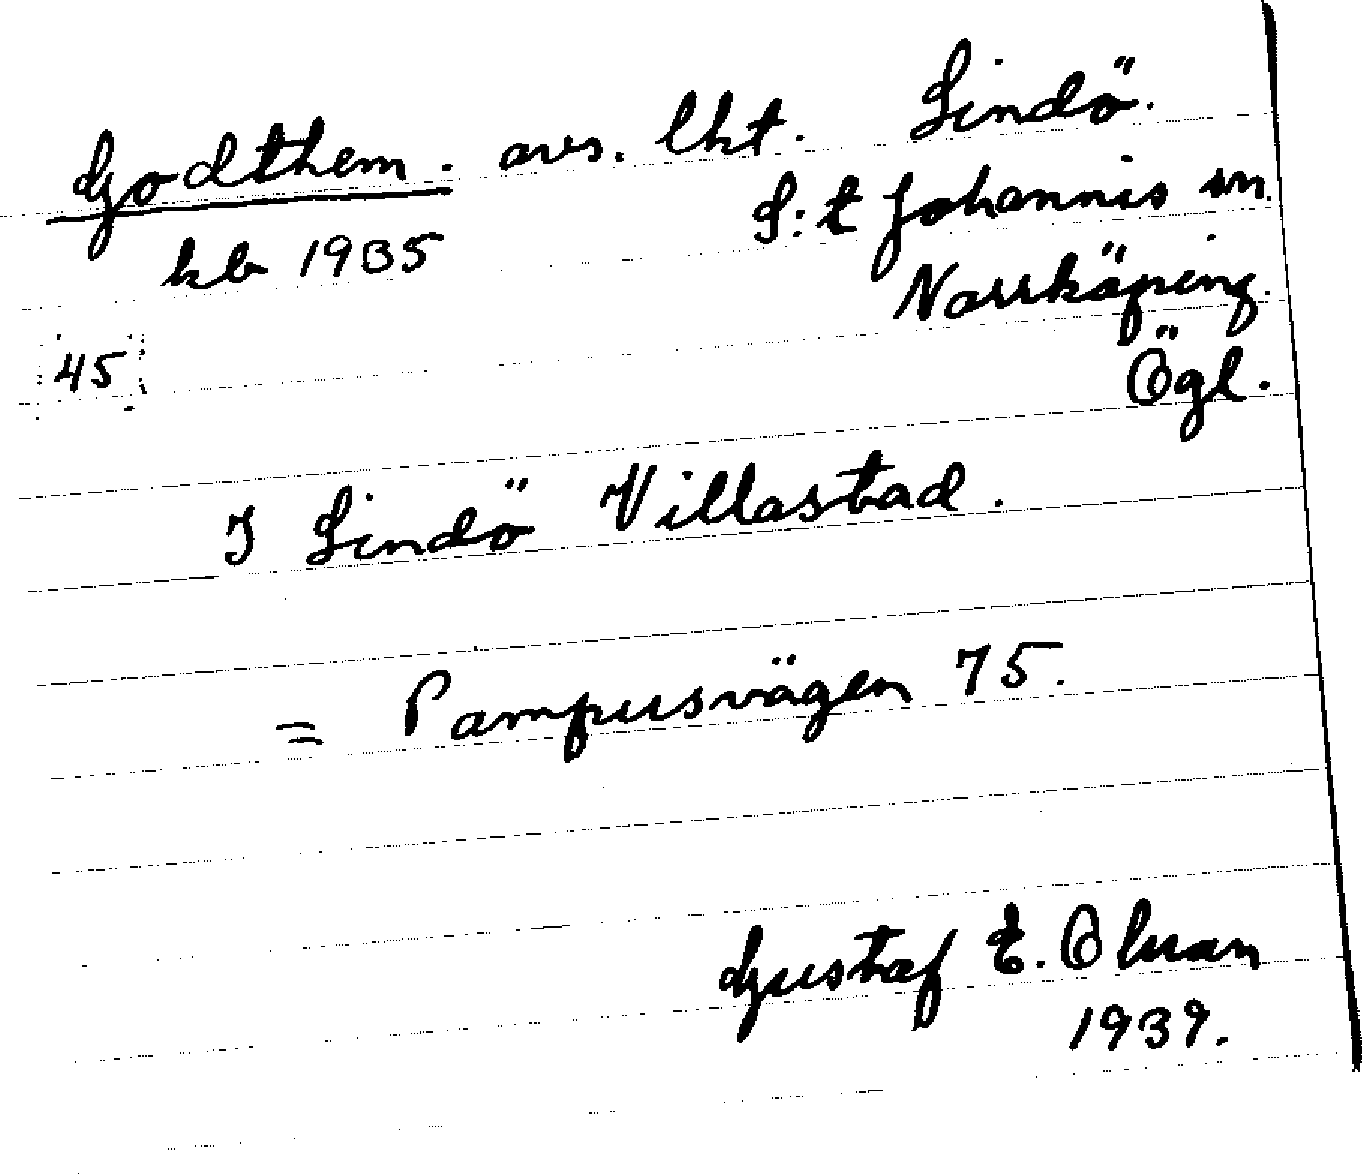 Godthem. avs. lht. Lindö.
kb 1935
S:t Johannis sn.
Norrköping.
Ögl.
45
I Lindö Villastad.
= Pampusvägen 75.
Gustaf E. Olsson
1939.